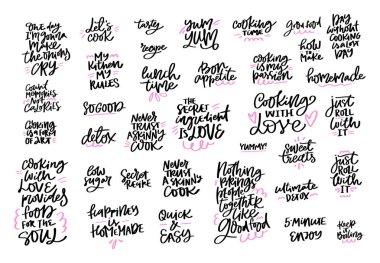 One day
I'm gonna
make
the onions
cry
Let's
cook
tasty
recipe
YUM
YUM
cooking
time
good food
how
to
make
Day
without
cooking
is a lost
day
my
kitchen
my
rules
lunch
time
Bon
appetite
cooking
is my
passion
homemade
Count
memories
not
calories
so good
Cooking
is a form
of art
detox
Never
trust
a skinny
cook
the
secret
ingredient
is love
Cooking
with
Love
just
roll
with
it
yummy!
sweet
treats
Cooking
with
love
provides
food
for the
soul
low
sugar
Secret
Recipe
Never
trust
a skinny
cook
Nothing
brings
people
together
like
good food
just
roll
with
it
ultimate
detox
happiness
is
homemade
Quick
&
easy
5 minute
enjoy
keep
it
boiling